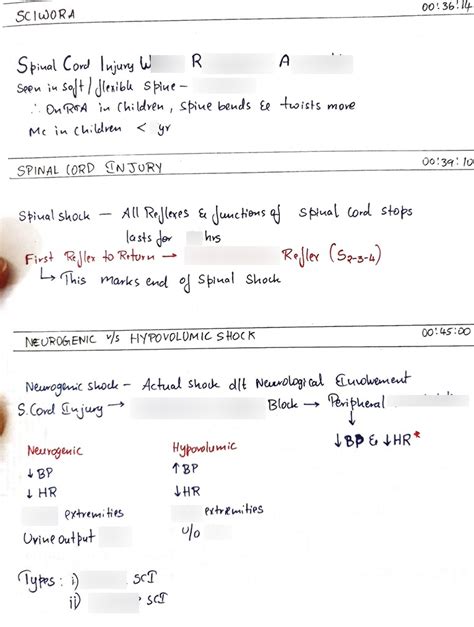 SCIWORA 00:36:14
Spinal Cord Injury W R A
Seen in soft/flexible spine -
∴ On RTA in children, spine bends & twists more
Mc in children < yr
SPINAL CORD INJURY 00:39:10
Spinal shock — All Reflexes & functions of spinal cord stops
lasts for hrs
First Reflex to Return → Reflex (S2-3-4)
↳ This marks end of Spinal Shock
NEUROGENIC v/s HYPOVOLUMIC SHOCK 00:45:00
Neurogenic shock – Actual shock d/t Neurological Involvement
S.Cord Injury → Block → Peripheral
↓
↓BP & ↓HR*
Neurogenic Hypovolumic
↓BP ↑BP
↓HR ↓HR
extremities extremities
Urine output u/o
Types: i) SCI
ii) SCI